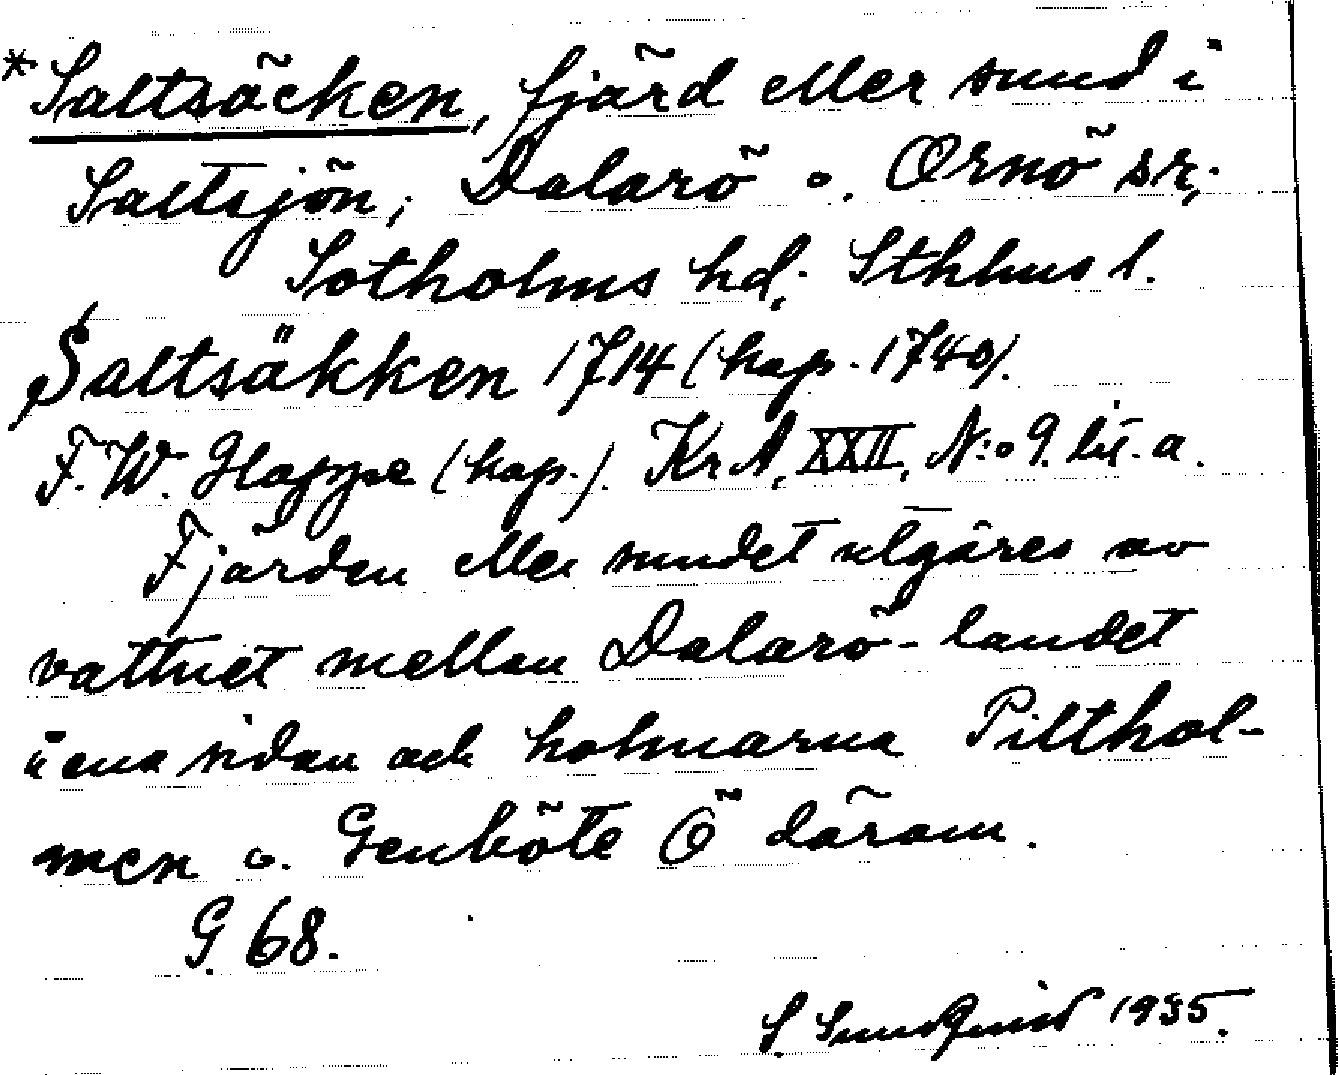 *Saltsäcken, fjärd eller sund i
Saltsjön; Dalarö o. Ornö sr,
Sotholms hd; Sthlms l.
Saltsäkken 1714 (kop. 1740).
F. W. Happe (kop.). KrA, XXII, N:o 9. lit. a.
Fjärden eller sundet utgöres av
vattnet mellan Dalarö-landet
å ena sidan och holmarna Pilthol-
men o. Genböte Ö därom.
G. 68.
S. Sundquist 1935.